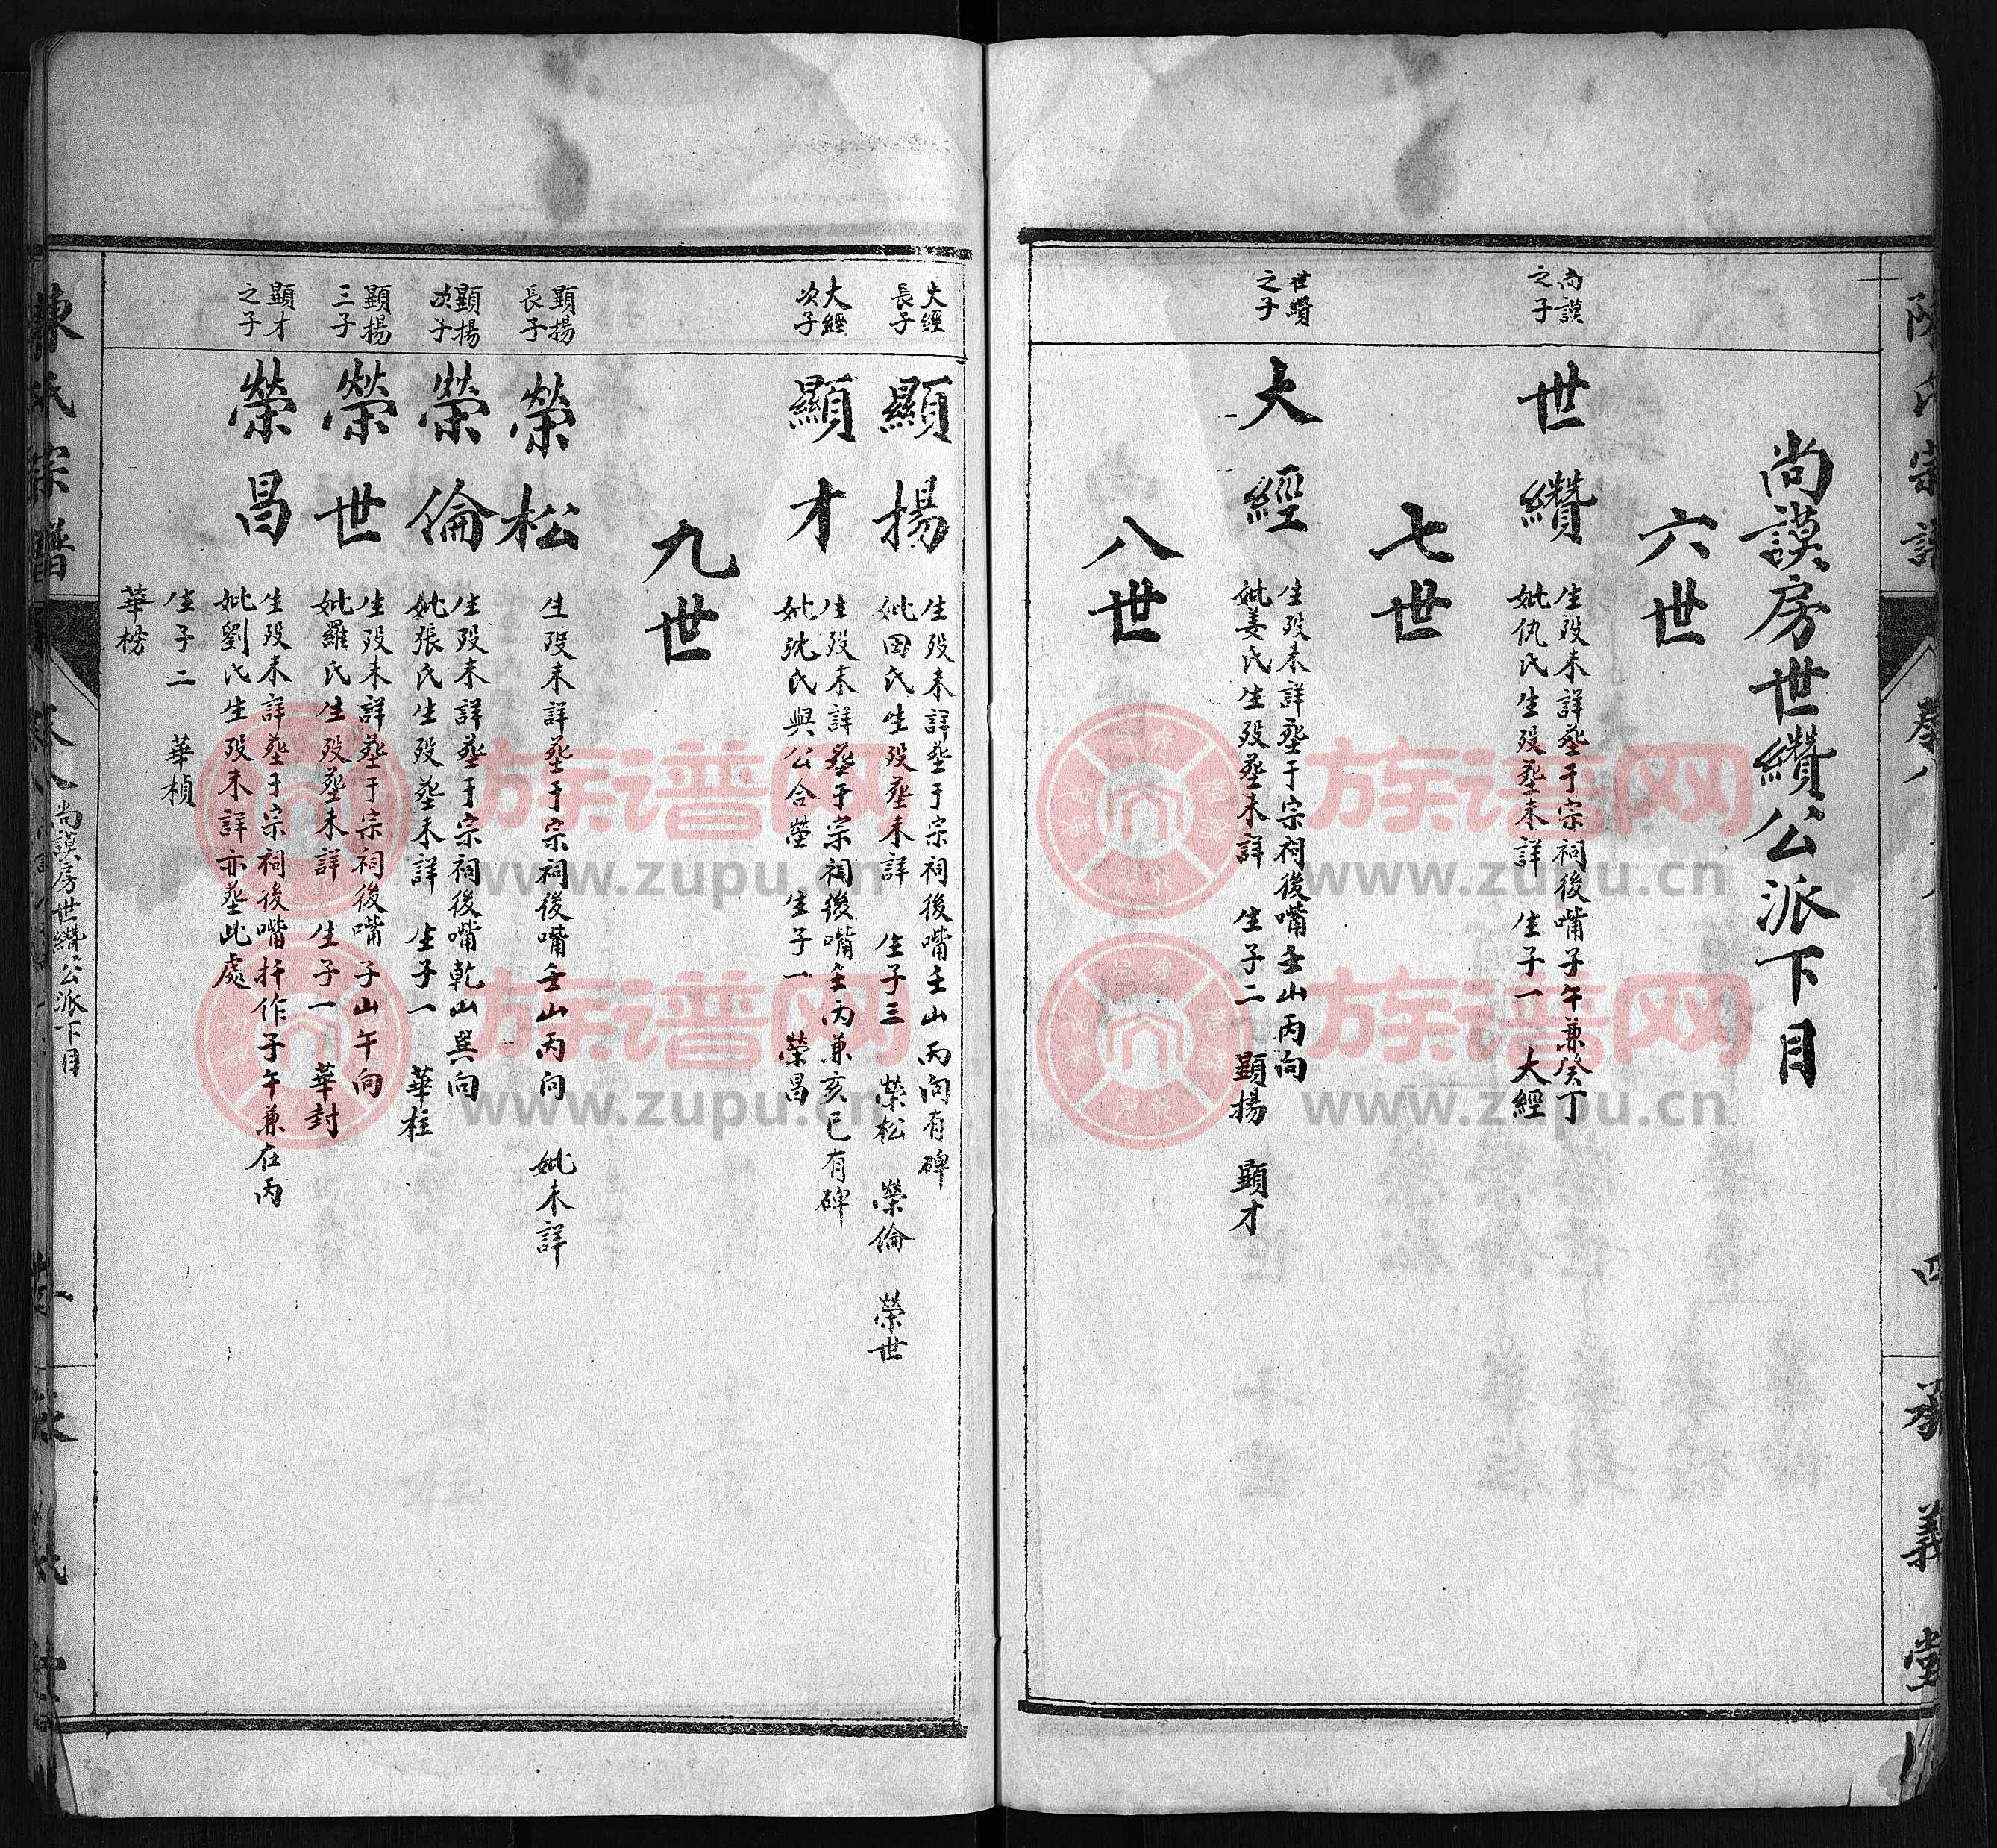 尚謨房世纘公派下目
六世
尚謨
之子
世纘
生歿未詳塟于宗祠後嘴子午兼癸丁
妣仇氏生歿塟未詳 生子一 大經
七世
世纘
之子
大經
生歿未詳塟于宗祠後嘴壬山丙向
妣姜氏生歿塟未詳 生子二 顯揚 顯才
八世
大經
長子
顯揚
生歿未詳塟于宗祠後嘴壬山丙向有碑
妣田氏生歿塟未詳 生子三 榮松 榮倫 榮世
大經
次子
顯才
生歿未詳塟于宗祠後嘴壬丙兼亥巳有碑
妣沈氏與公合塋 生子一 榮昌
九世
顯揚
長子
榮松
生歿未詳塟于宗祠後嘴壬山丙向 妣未詳
顯揚
次子
榮倫
生歿未詳塟于宗祠後嘴乾山巽向
妣張氏生歿塟未詳 生子一 華柱
顯揚
三子
榮世
生歿未詳塟于宗祠後嘴子山午向
妣羅氏生歿塟未詳 生子一 華封
顯才
之子
榮昌
生歿未詳塟于宗祠後嘴扦作子午兼在丙
妣劉氏生歿未詳亦塟此處
生子二 華楨
華榜
尚謨房世纘公派下目
四
承義堂
族谱网
www.zupu.cn
族谱网
www.zupu.cn
族谱网
www.zupu.cn
族谱网
www.zupu.cn